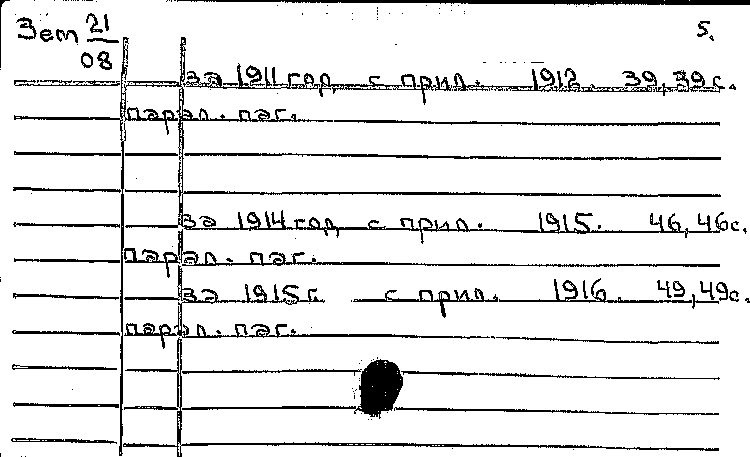 Зет 21 5.
08
за 1911 год с прил. 1912. 39, 39с.
парал. паг.
за 1914 год с прил. 1915. 46, 46с.
парал. паг.
за 1915 г. с прил. 1916. 49, 49с.
парал. паг.